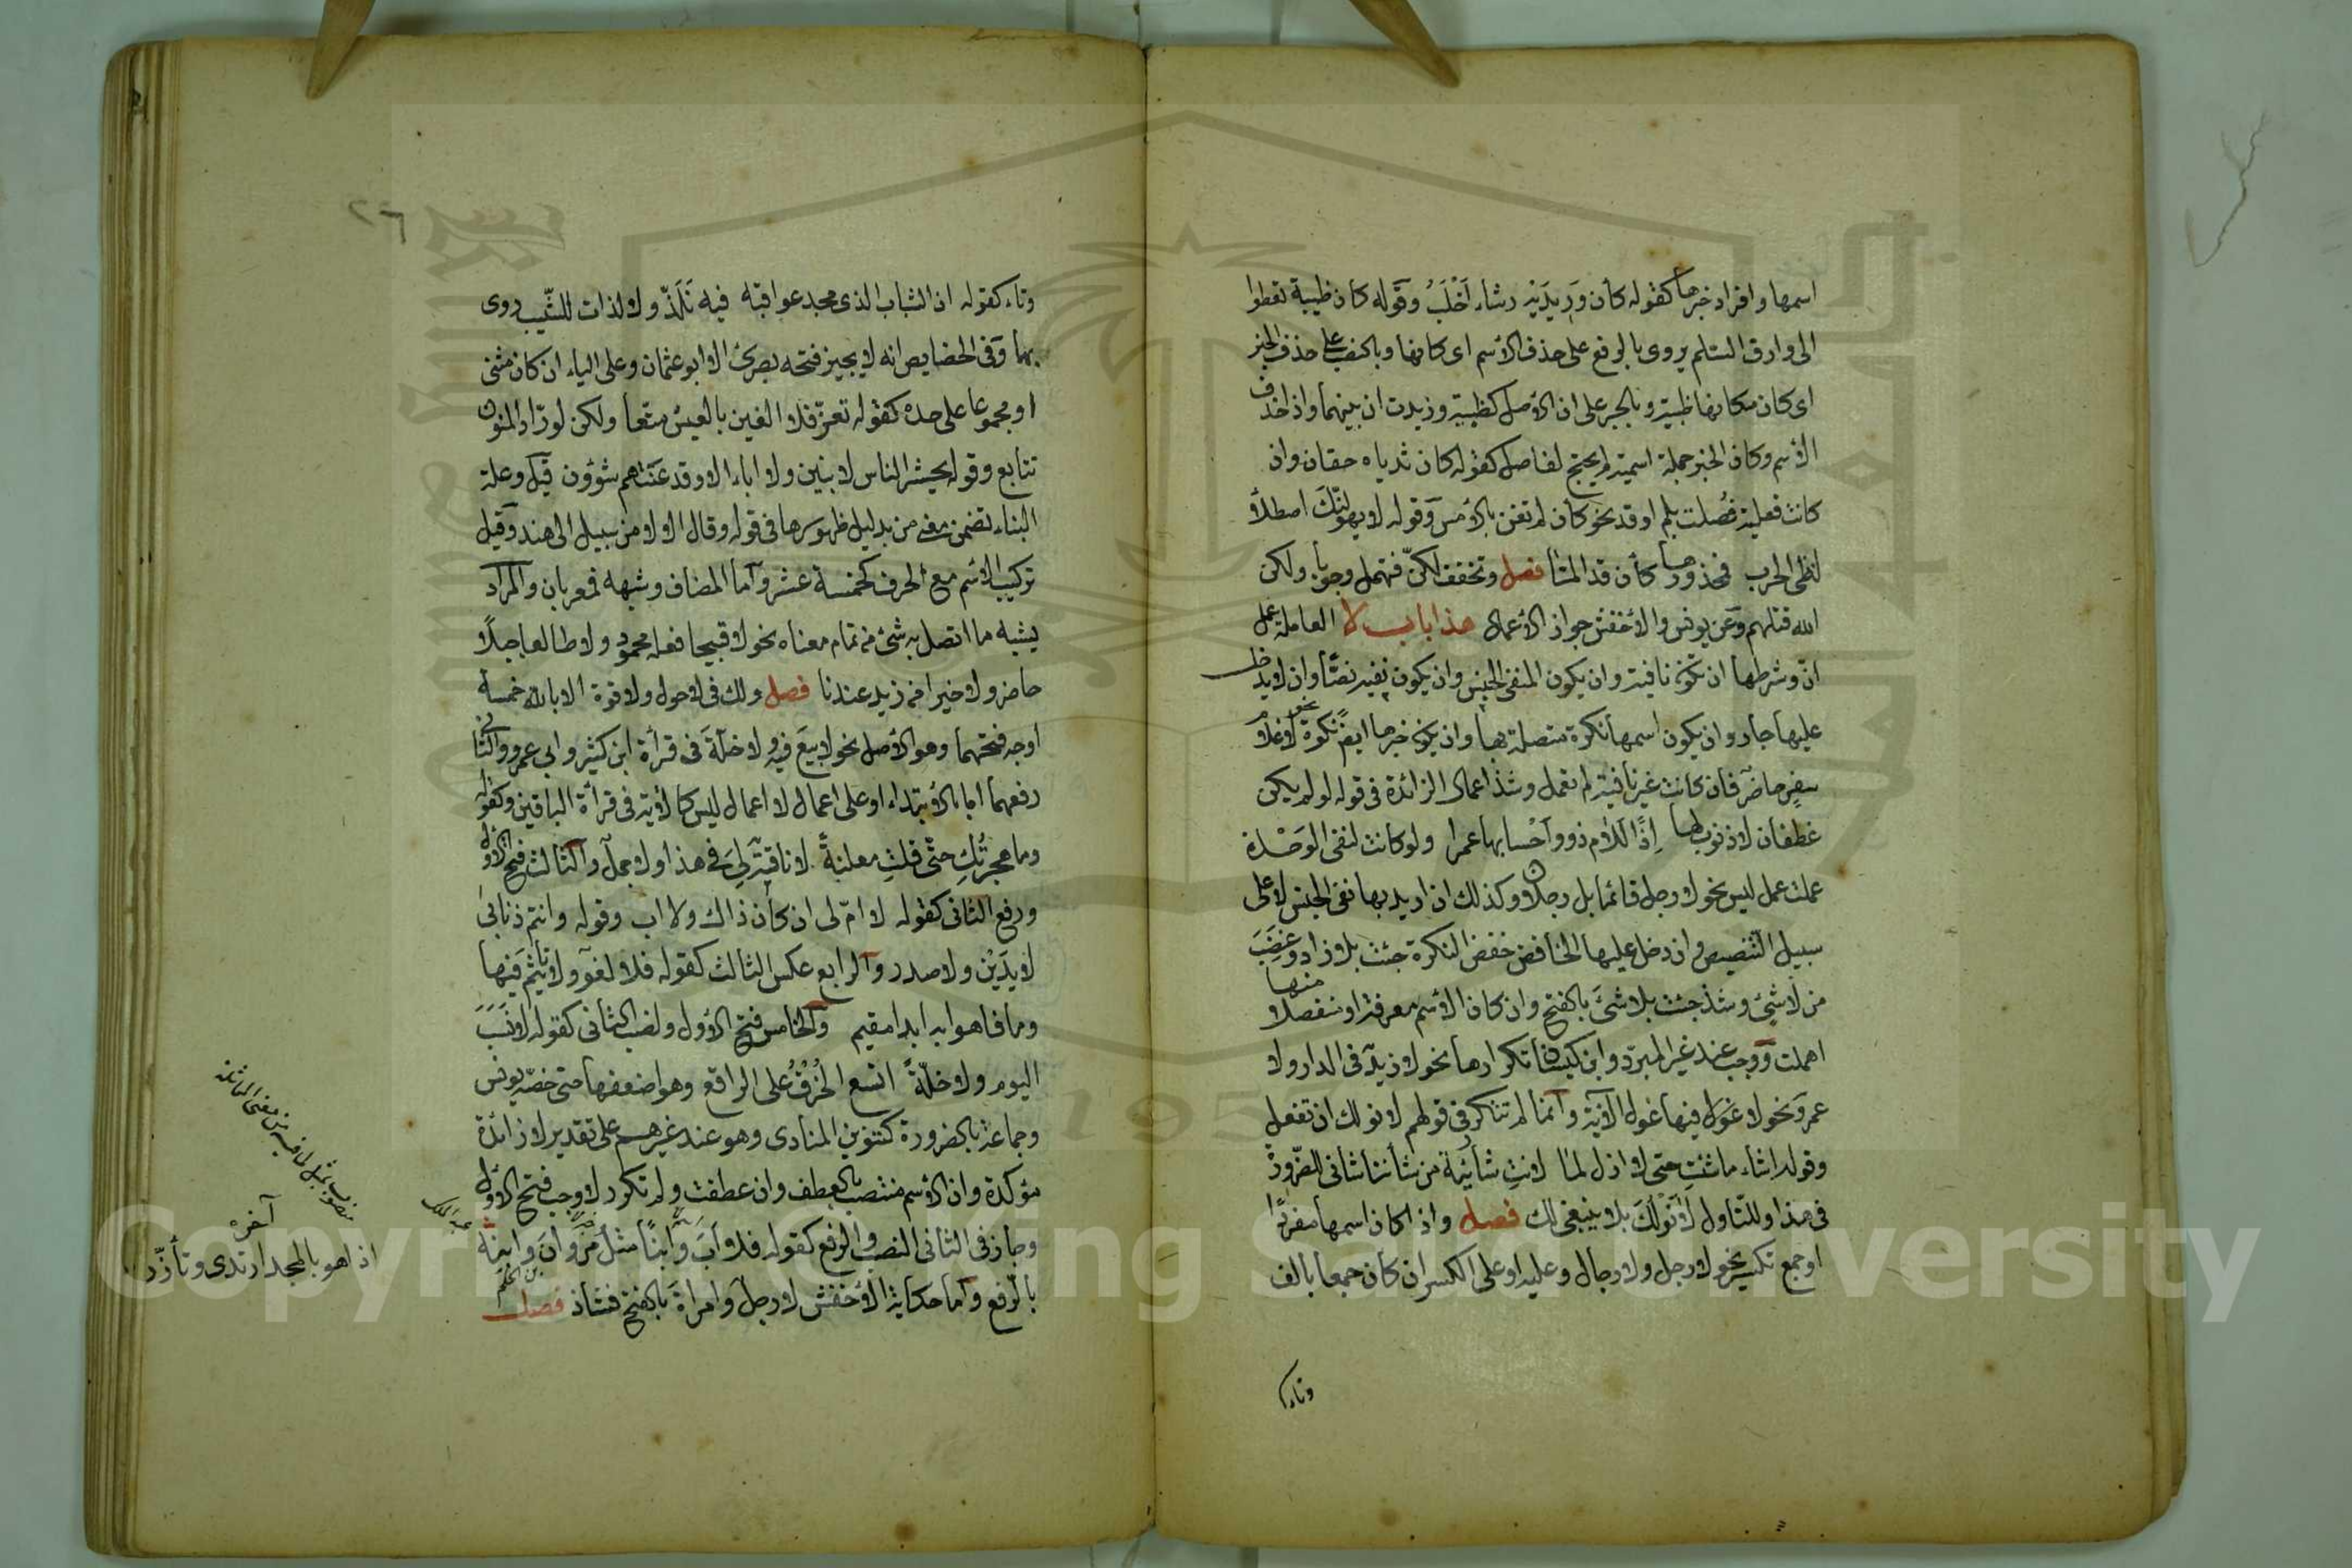 اسمها وافراد خبرها كقوله كأن وَرِيدَيْه رشاء اَخْلَبُ وقوله كان ظبية تعطوا
الى وارق السلم يروى بالرفع على حذف الاسم اى كانها وبالنصب على حذف الخبر
اى كان مكانها ظبية وبالجر على ان الاصل كظبية وزيدت ان بينهما واذا حذف
الاسم وكان الخبر جملة اسمية لم يحتج لفاصل كقوله كان ثدياه حقان وان
كانت فعلية فُصلت بلم او قد نحو كأن لم تغن بالامس وقوله لا يهولنّك اصطلاء
لظى الحرب فمحذورها كأن قد المّا فصل وتخفف لكنّ فتهمل وجوبا ولكن
الله قتلهم وعن يونس والاخفش جواز الاعمال هذا باب لا العاملة عمل
انّ وشرطها ان تكون نافية وان يكون المنفى الجنس وان يكون نفيه نصّا وان لا يدخل
عليها جار وان يكون اسمها نكرة متصلة بها وان يكون خبرها ايضا نكرة نحو لا غلام
سفر حاضر فان كانت غير نافية لم تعمل وشذ اعمال الزائدة فى قوله لو لم يكن
غطفان لا ذنوب لها اِذًا لَلام ذوو اَحْسابها عمرا ولو كانت لنفى الوَحْدة
عملت عمل ليس نحو لا رجل قائما بل رجلان وكذلك ان اريد بها نفى الجنس لا على
سبيل التنصيص وان دخل عليها الخافض خفض النكرة جئت بلا زاد وغضبت
من لا شئ وشذ جئت بلا شئَ بالفتح وان كان الاسم معرفة او منفصلا منها
اهملت ووجب عند غير المبرّد وابن كيسان تكرارها نحو لا زيد فى الدار ولا
عمرو ونحو لا غول فيها غول الآية وانما لم تتكرر فى قولهم لا نولك ان تفعل
وقوله اشاء ما شئتِ حتى لا ازل لما لا انتِ شائية من شأننا شانى للضرورة
فى هذا وللتاول لا نَوْلُكَ بلا ينبغى لك فصل واذا كان اسمها مفردًا
او جمع تكسير نحو لا رجل ولا رجال وعليه او على الكسر ان كان جمعا بالف
وتاء
وتاء كقوله ان الشباب الذى مجد عواقبه فيه نَلَذّ ولا لذات للشّيب روى
بهما وفى الخصايص انه لا يجيز فتحه بصرى الا ابو عثمان وعلى الياء ان كان مثنى
او مجموعا على حده كقوله تعزّ فلا الفين بالعيش متّعا ولكن لورّاد المنون
تتابع وقوله يحشر الناس لا بنين ولا اباء الا وقد عَنَتْهم شؤون قيل وعلة
البناء تضمن معنى من بدليل ظهورها فى قوله وقال الا لا من سبيل الى هند وقيل
تركيب الاسم مع الحرف كخمسة عشر واما المضاف وشبهه فمعربان والمراد
بشبهه ما اتصل به شئ من تمام معناه نحو لا قبيحا فعله محمود ولا طالعا جبلًا
حاضر ولا خيرا من زيد عندنا فصل ولك فى لا حول ولا قوة الا بالله خمسة
اوجه فتحهما وهو الاصل نحو لا بيعَ فيه ولا خلّةَ فى قرأة ابن كثير وابى عمرو والثانى
رفعهما اما بالابتداء او على اعمال لا اعمال ليس كالآية فى قرأة الباقين وكقوله
وما هجرتُكِ حتّى قلتِ معلنةً لا ناقة لِىَ فى هذا ولا جمل والثالث فتح الاول
ورفع الثانى كقوله لا امّ لى ان كان ذاك ولا اب وقوله وانتم ذنابى
لا يدَيْن ولا صدر والرابع عكس الثالث كقوله فلا لغو ولا تأثيم فيها
وما فاهوا به ابدا مقيم والخامس فتح الاول ونصب الثانى كقوله لا نَسَبَ
اليوم ولا خلّةً اتسع الخَرْقُ على الراقع وهو اضعفها حتى خصّه يونس
وجماعة بالضرورة كتنوين المنادى وهو عند غيرهم على تقدير لا زائدة
مؤكدة وان الاسم منتصب بالعطف وان عطفت ولم تكرر لا وجب فتح الاول
وجاز فى الثانى النصب والرفع كقوله فلا اَبَ وابنًا مثلُ مروانَ وابنه
بالرفع واما حكاية الاخفش لا رجلَ وامراةَ بالفتح فشاذ فصل
بن الحكم
عبد الملك
آخره
اذا هو بالمجد ارتدى وتأزّرا